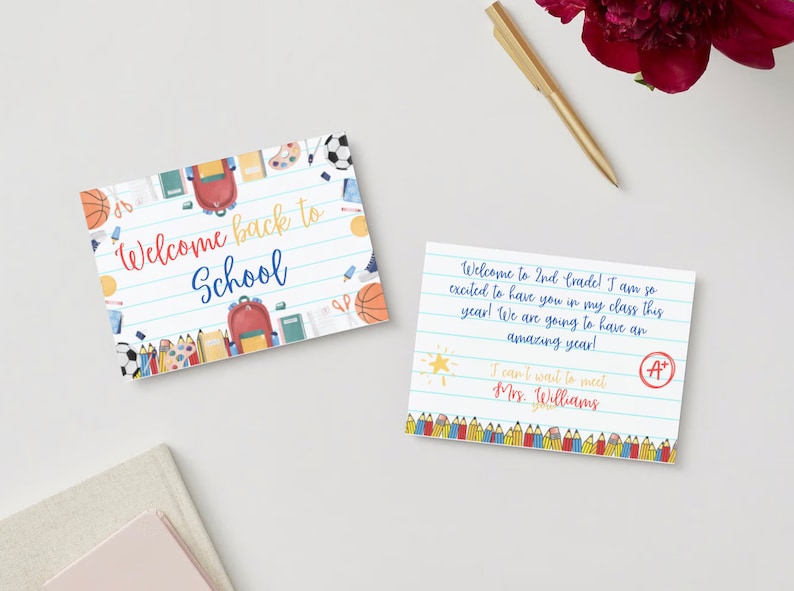 Welcome back to
School
Welcome to 2nd Grade! I am so
excited to have you in my class this
year! We are going to have an
amazing year!
I can't wait to meet
Mrs. Williams
you
A+